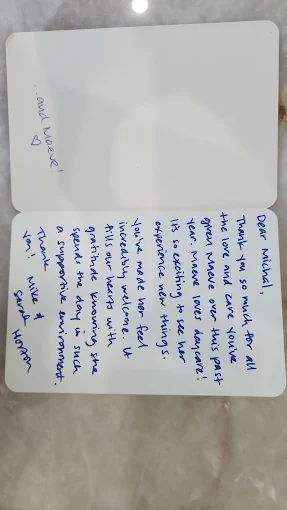 Dear Michal,
Thank you so much for all
the love and care you've
given Maeve over this past
year. Maeve loves daycare!
It's so exciting to see her
experience new things.
You've made her feel
incredibly welcome. It
fills our hearts with
gratitude knowing she
spends the day in such
a supportive environment.
Thank
you! Mike &
Sarah Horton
...and Maeve!